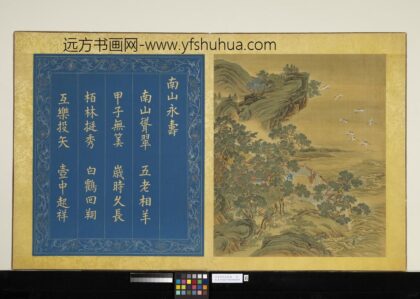 远方书画网-www.yfshuhua.com
南山永壽
南山聳翠 五老相羊
甲子無筭 歲時久長
栢林挺秀 白鶴回翔
互樂投矢 壺中起祥